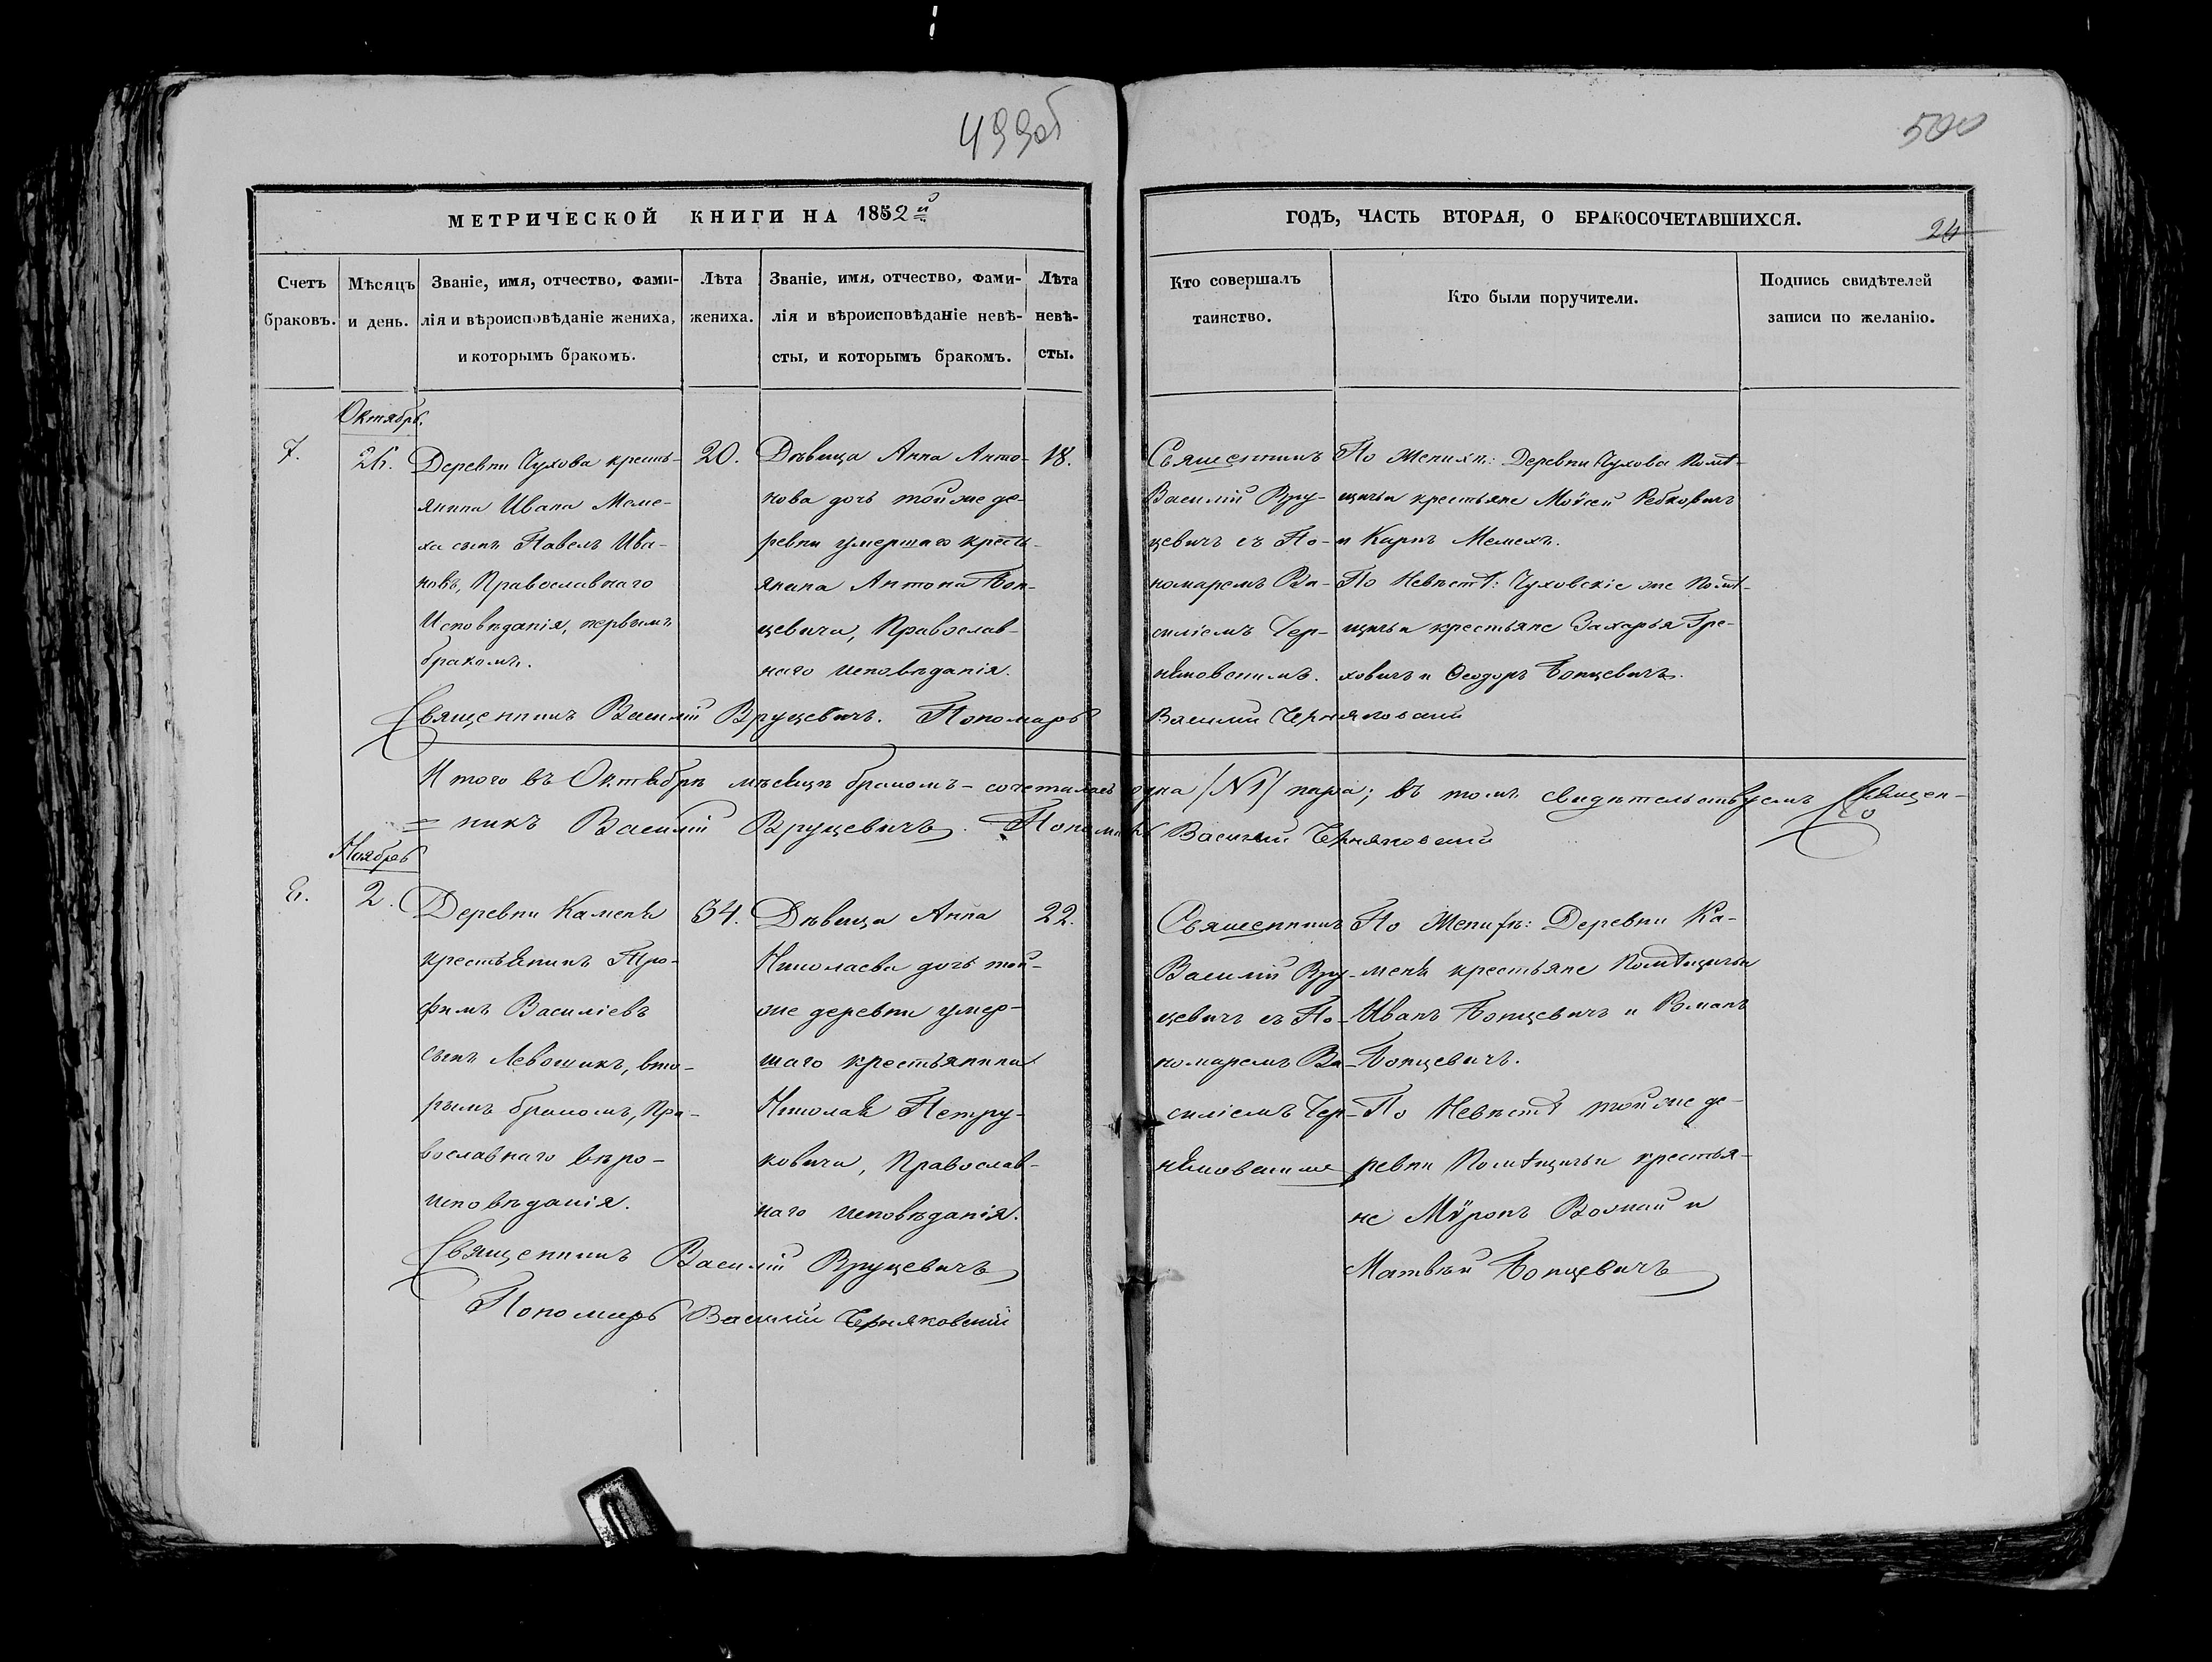 499об
500
МЕТРИЧЕСКОЙ КНИГИ НА 1852й
ГОДЪ, ЧАСТЬ ВТОРАЯ, О БРАКОСОЧЕТАВШИХСЯ.
24
Счетъ браковъ.
Мѣсяцъ и день.
Званіе, имя, отчество, фами-
лія и вѣроисповѣданіе жениха,
и которымъ бракомъ.
Лѣта
жениха.
Званіе, имя, отчество, фами-
лія и вѣроисповѣданіе невѣ-
сты, и которымъ бракомъ.
Лѣта
невѣ-
сты.
Кто совершалъ
таинство.
Кто были поручители.
Подпись свидѣтелей
записи по желанію.
Октябрь.
7.
26.
Деревни Чухова кресть-
янина Ивана Меме-
ха сынъ Павелъ Ива-
новъ, Православнаго
Исповѣданія, первымъ
бракомъ.
20.
Дѣвица Анна Анто-
нова дочь тойже де-
ревни умершаго кресть-
янина Антона Бон-
цевича, Православ-
наго исповѣданія.
18.
Священникъ
Василій Вру-
цевичъ съ По-
номаремъ Ва-
силіемъ Чер-
няковскимъ.
По Женихѣ: Деревни Чухова Помѣ-
щичьи крестьяне Моѵсей Ребковичъ
и Карпъ Мемехъ.
По Невѣстѣ: Чуховскіе же Помѣ-
щичьи крестьяне Захарья Гре-
ховичъ и Ѳеодоръ Бонцевичъ.
Священникъ Василій Вруцевичъ. Пономарь Василій Черняковскій
Итого въ Октябрѣ мѣсяцѣ бракомъ-сочеталась одна /№1/ пара; въ томъ свидѣтельствуемъ Священ-
=никъ Василій Вруцевичъ. Пономарь Василій Черняковскій
Ноябрь
8.
2.
Деревни Каменя
крестьянинъ Тро-
фимъ Василіевъ
сынъ Левошикъ, вто-
рымъ бракомъ, Пра-
вославнаго вѣро-
исповѣданія.
34.
Дѣвица Анна
Николаева дочь той-
же деревни умер-
шаго крестьянина
Николая Петру-
ковича, Православ-
наго исповѣданія.
22.
Священникъ
Василій Вру-
цевичъ съ По-
номаремъ Ва-
силіемъ Чер-
няковскимъ
По Женихѣ: Деревни Ка-
меня крестьяне Помѣщичьи
Иванъ Бонцевичъ и Романъ
Бонцевичъ.
По Невѣстѣ тойже де-
ревни Помѣщичьи крестья-
не Мѵронъ и
Матвѣй Бонцевичъ
Священникъ Василій Вруцевичъ
Пономарь Василій Черняковскій